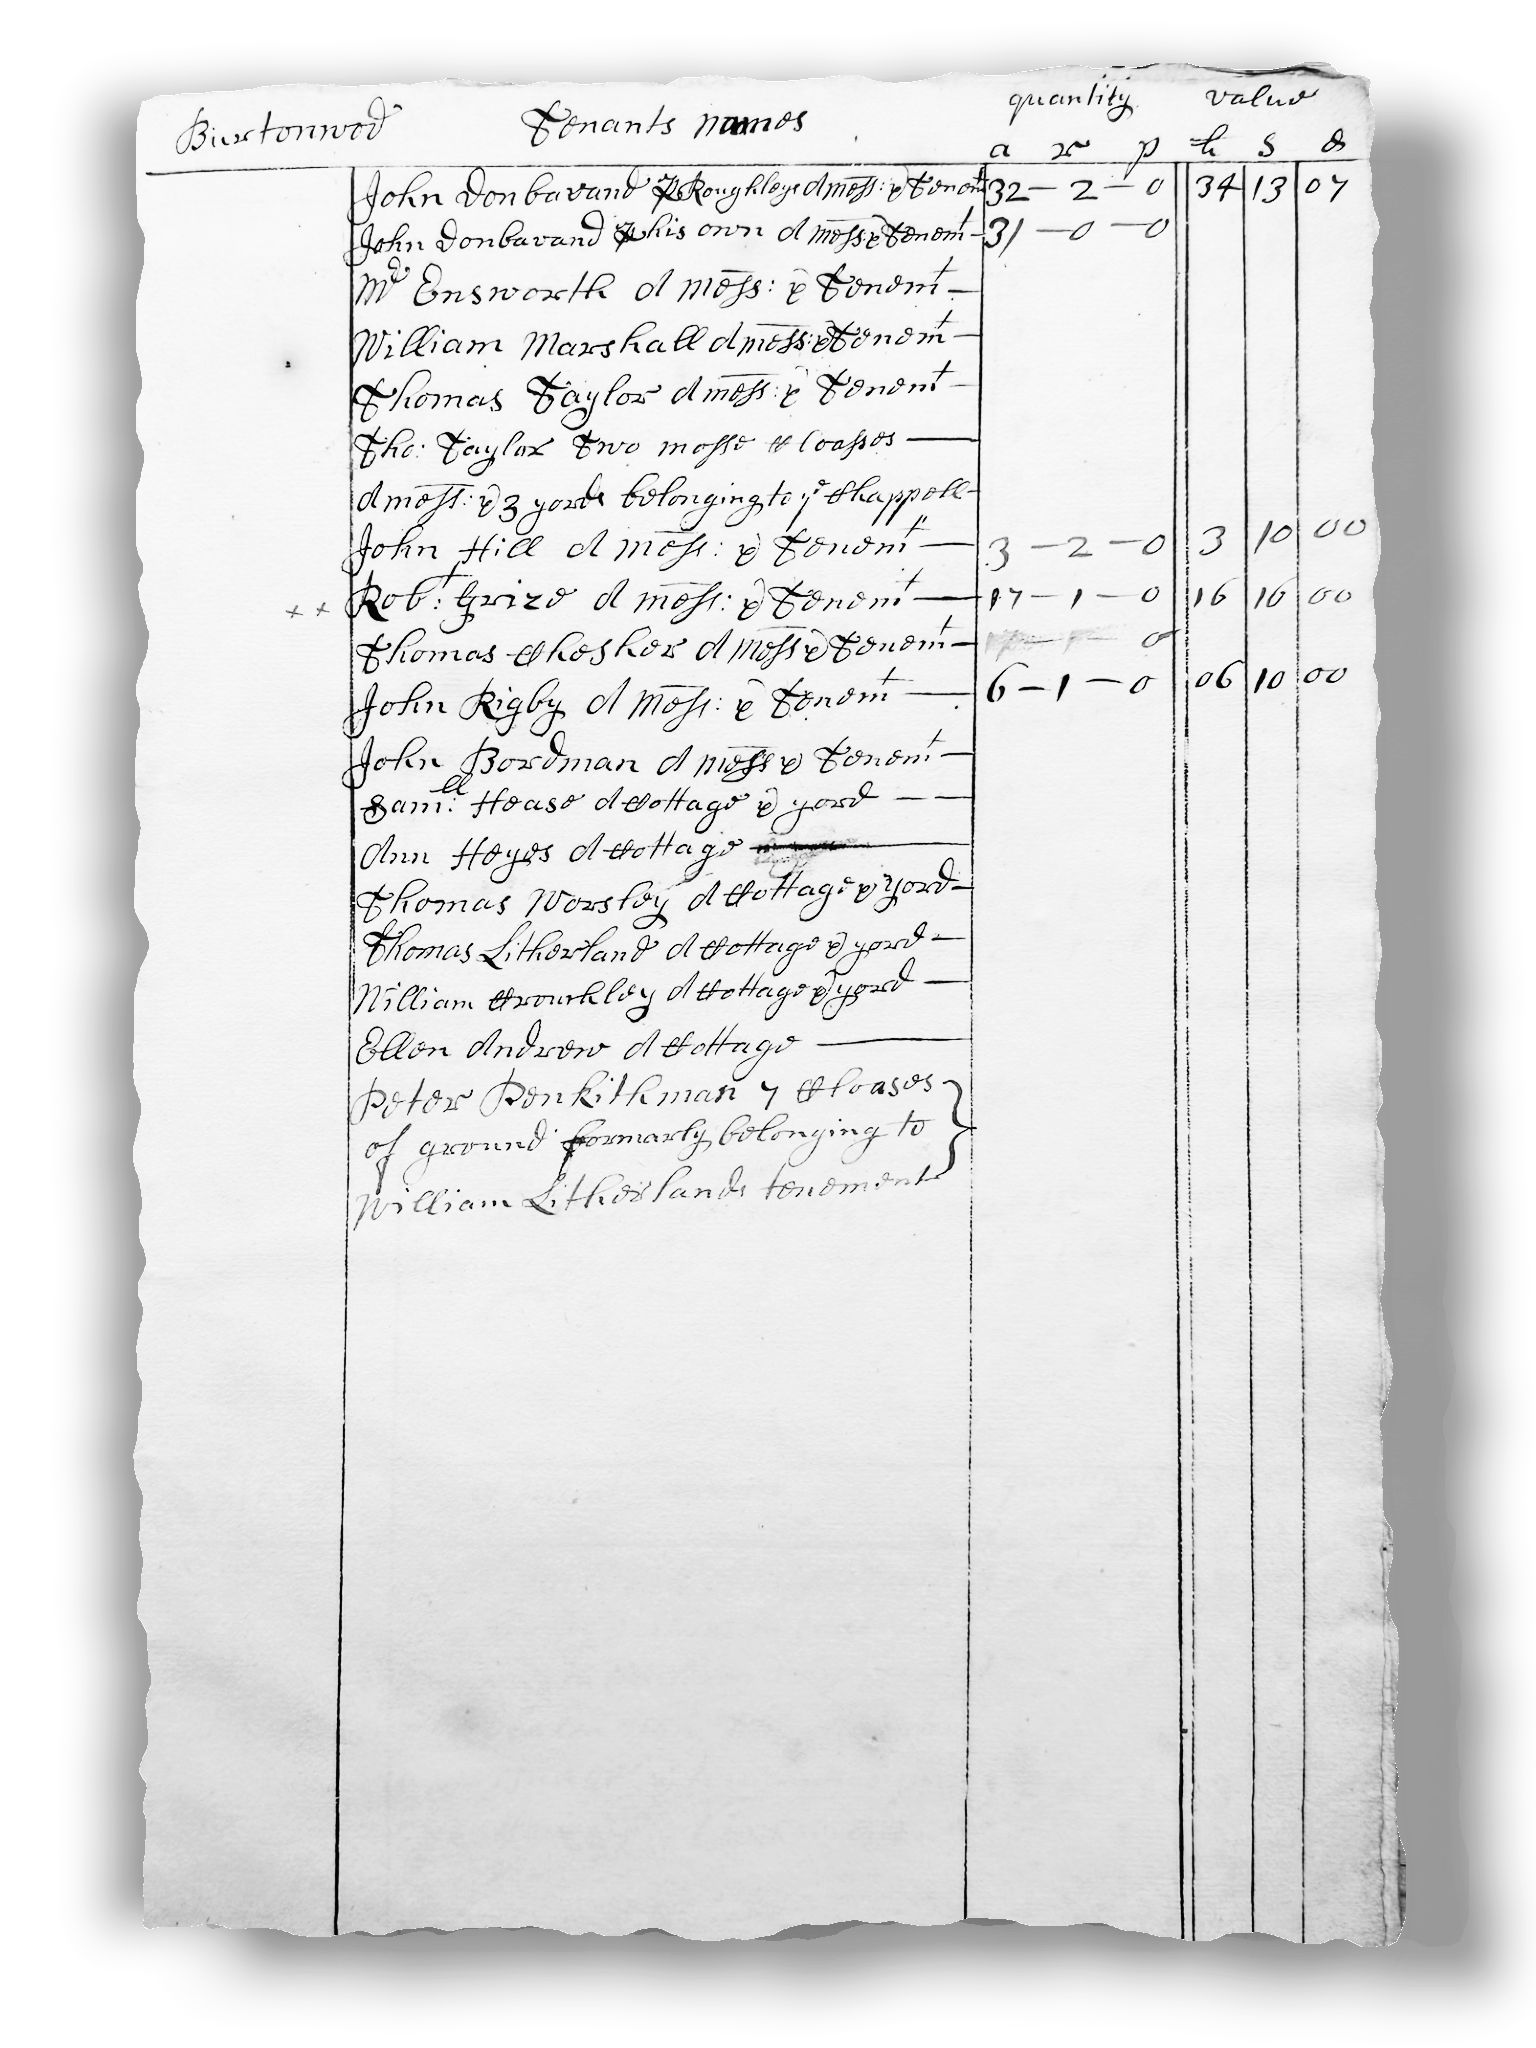 Burtonwod Tenants names quantity value
a r p li s d
John Donbavand p Roughleys A mess: & Tenemt 32 - 2 - 0 34 13 07
John Donbavand p his own A mess & Tenemt - 31 - 0 - 0
Mr Ensworth A mess: & Tenemt -
William Marshall A mess: & Tenemt -
Thomas Taylor A mess: & Tenemt -
Tho: Taylor Two mosse Cloasses —
A mess: & 3 yords belonging to ye Chappell -
John Hill A mess: & Tenemt — 3 - 2 - 0 3 10 00
++ Robt: Grize A mess: & Tenemt — 17 - 1 - 0 16 16 00
Thomas Chesher A mess & Tenemt - 0
John Rigby A mess: & Tenemt — 6 - 1 - 0 06 10 00
John Bordman A mess & Tenemt -
Samll: Hease A Cottage & yord - -
Ann Heyes A Cottage —
Thomas Worsley A Cottage & Yord -
Thomas Litherland A Cottage & yord -
William Crouchley A Cottage & yord -
Ellen Andrew A Cottage —
Peter Penkithman 7 Cloases
of ground formarly belonging to
William Litherlands tenement